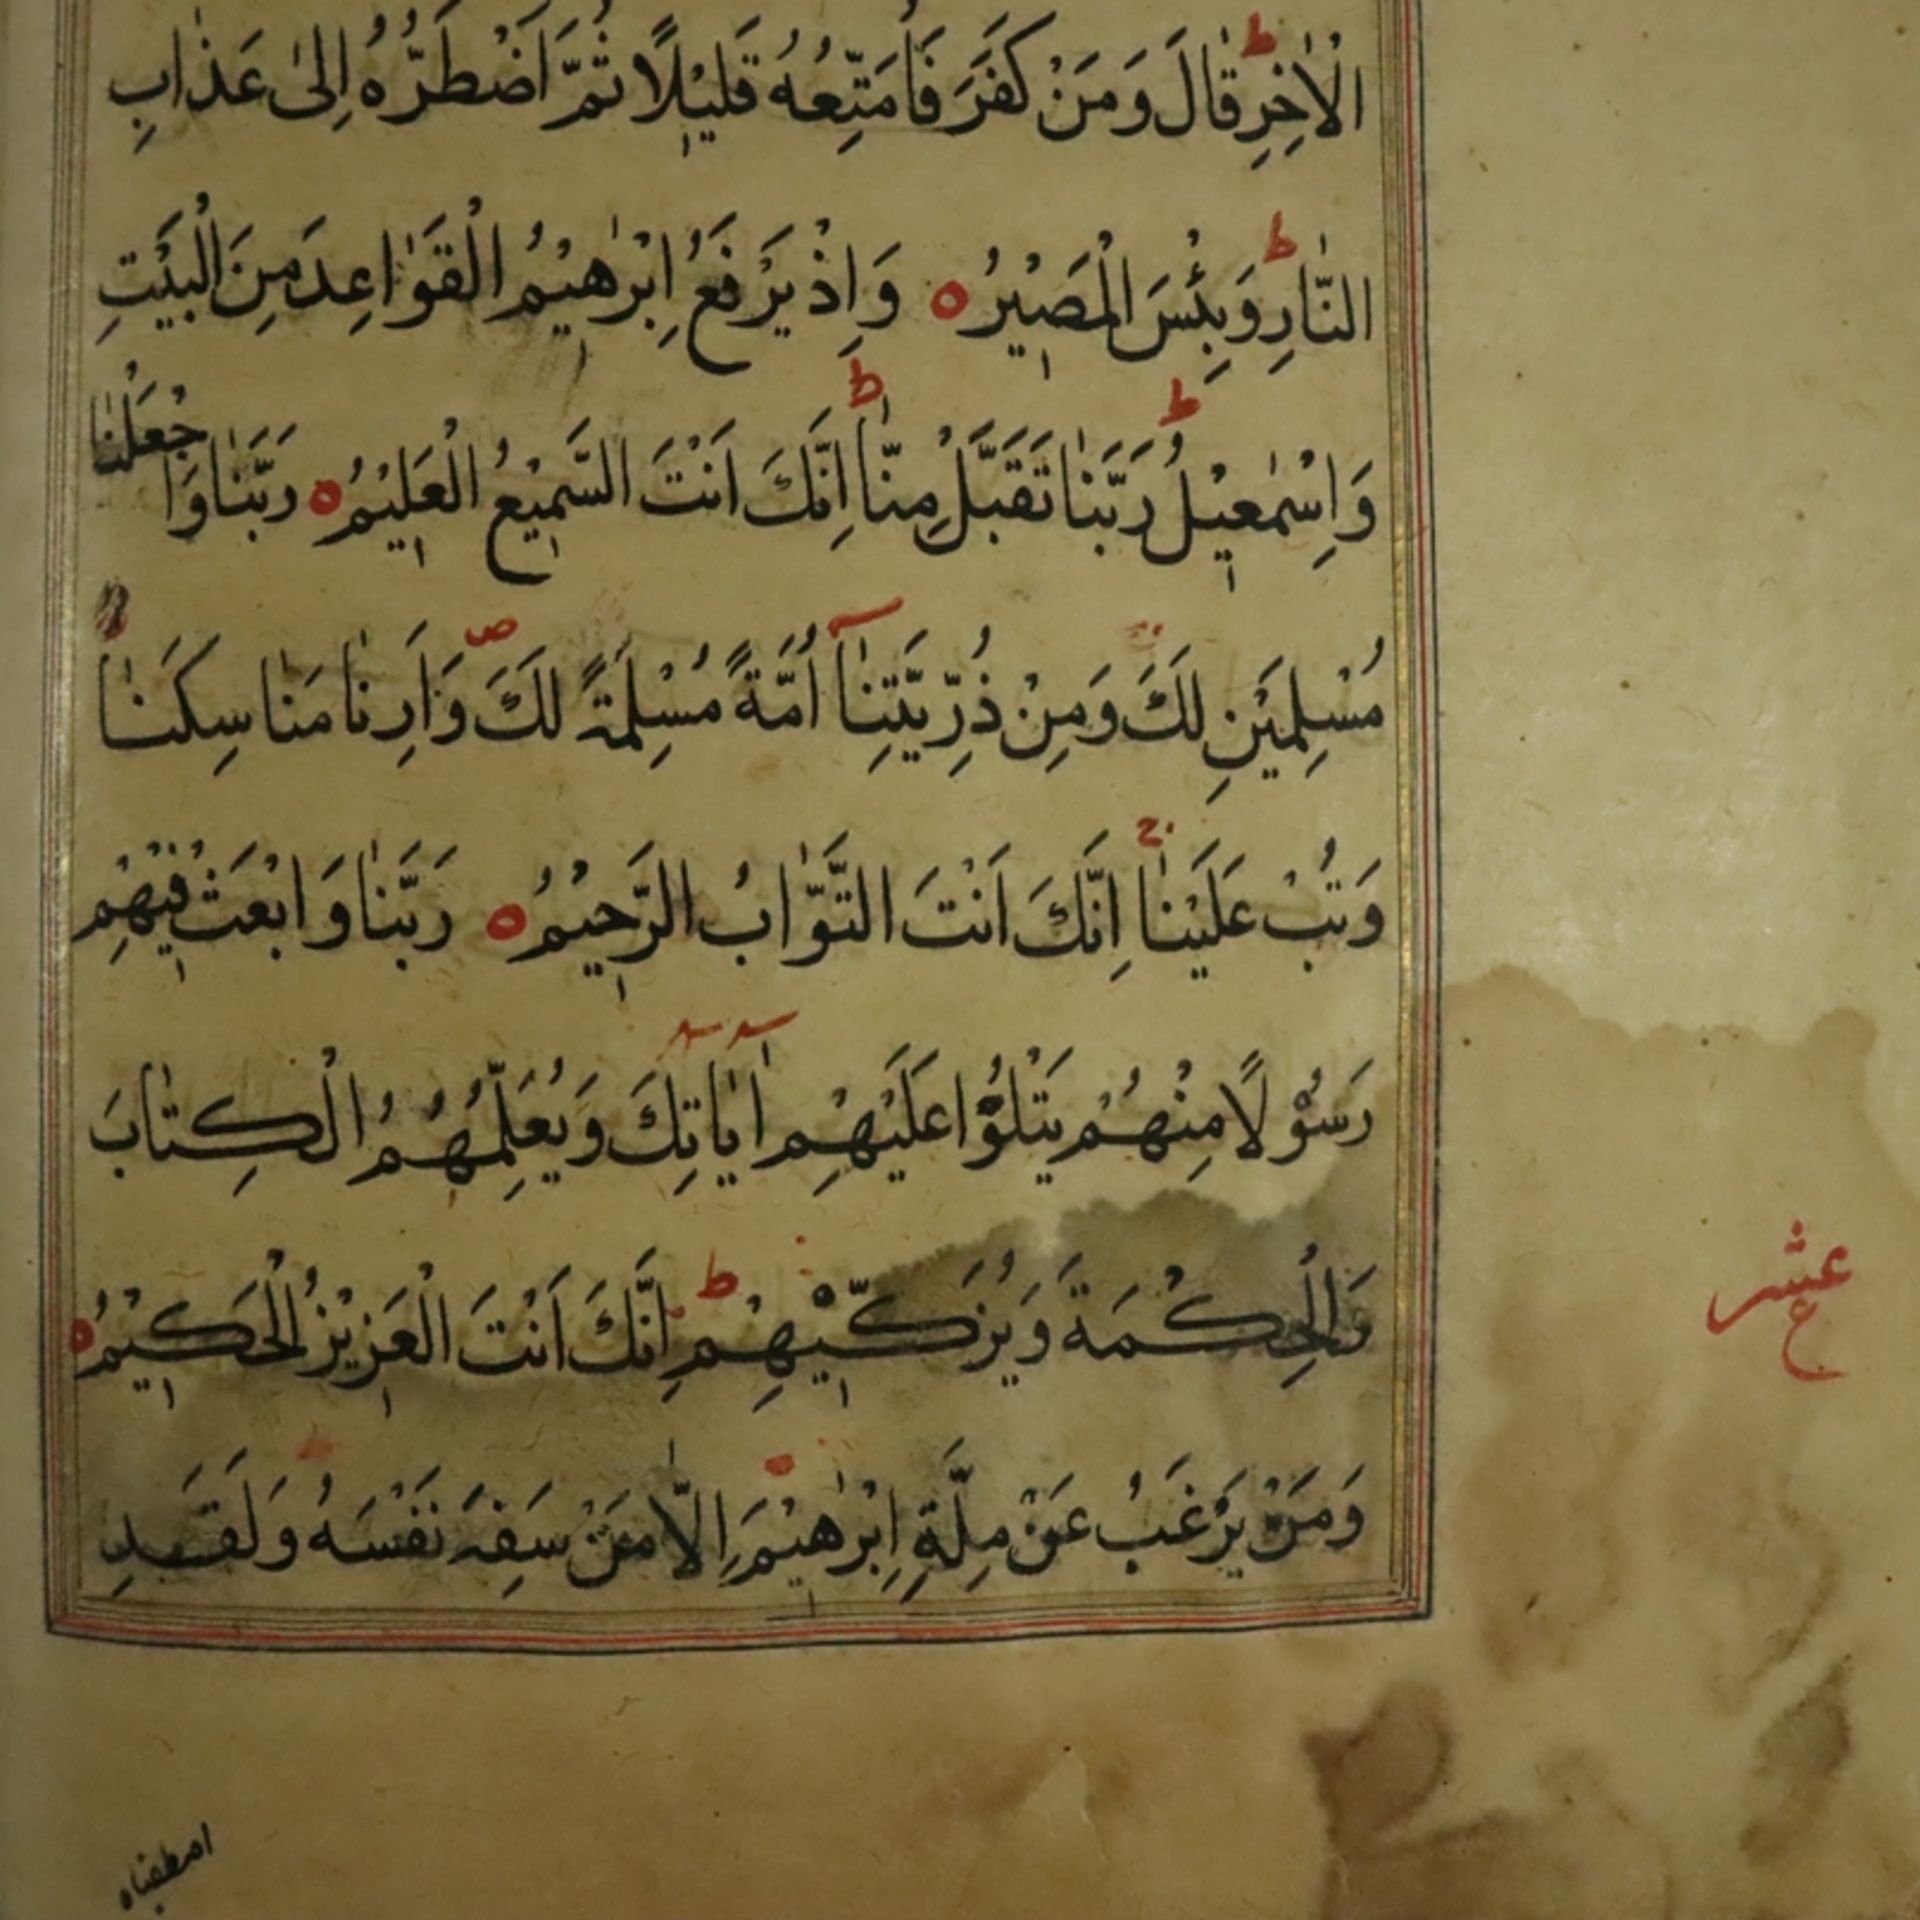 الْاٰخِرِ قَالَ وَمَنْ كَفَرَ فَاُمَتِّعُهُ قَلِيْلًا ثُمَّ اَضْطَرُّهُ اِلٰى عَذَابِ
النَّارِ وَبِئْسَ الْمَصِيْرُ ه وَاِذْ يَرْفَعُ اِبْرٰهِيْمُ الْقَوَاعِدَ مِنَ الْبَيْتِ
وَاِسْمٰعِيْلُ رَبَّنَا تَقَبَّلْ مِنَّا اِنَّكَ اَنْتَ السَّمِيْعُ الْعَلِيْمُ ه رَبَّنَا وَاجْعَلْنَا
مُسْلِمَيْنِ لَكَ وَمِنْ ذُرِّيَّتِنَآ اُمَّةً مُسْلِمَةً لَكَ وَاَرِنَا مَنَاسِكَنَا
وَتُبْ عَلَيْنَا اِنَّكَ اَنْتَ التَّوَّابُ الرَّحِيْمُ ه رَبَّنَا وَابْعَثْ فِيْهِمْ
رَسُوْلًا مِنْهُمْ يَتْلُوْا عَلَيْهِمْ اٰيَاتِكَ وَيُعَلِّمُهُمُ الْكِتَابَ
وَالْحِكْمَةَ وَيُزَكِّيْهِمْ اِنَّكَ اَنْتَ الْعَزِيْزُ الْحَكِيْمُ ه
عشر
ع
وَمَنْ يَرْغَبُ عَنْ مِلَّةِ اِبْرٰهِيْمَ اِلَّا مَنْ سَفِهَ نَفْسَهُ وَلَقَدِ
اصطفيناه